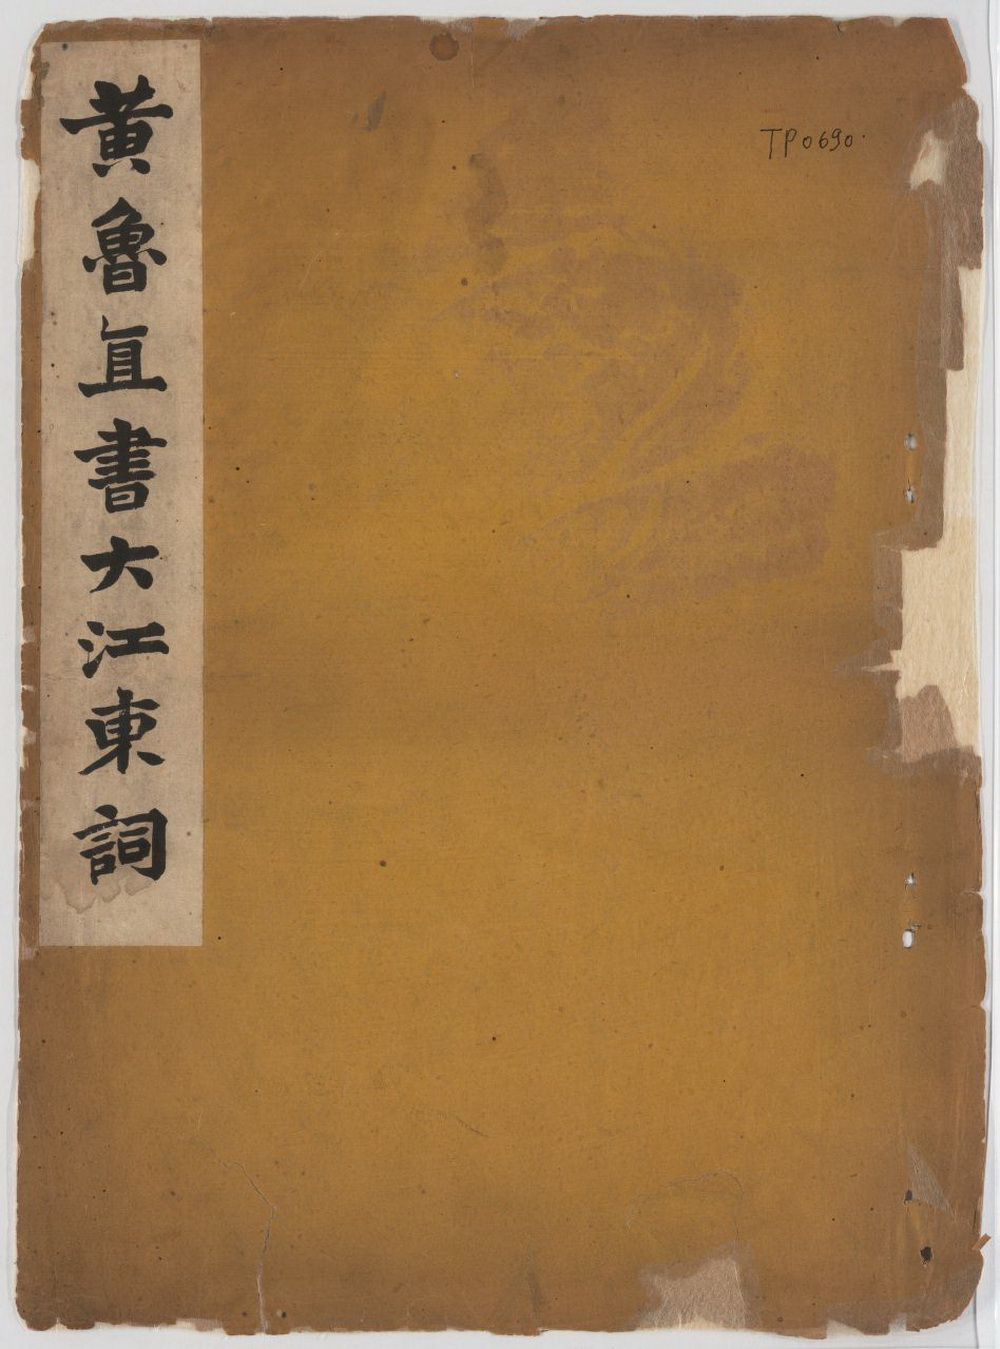 黄魯直書大江東詞
TP0690